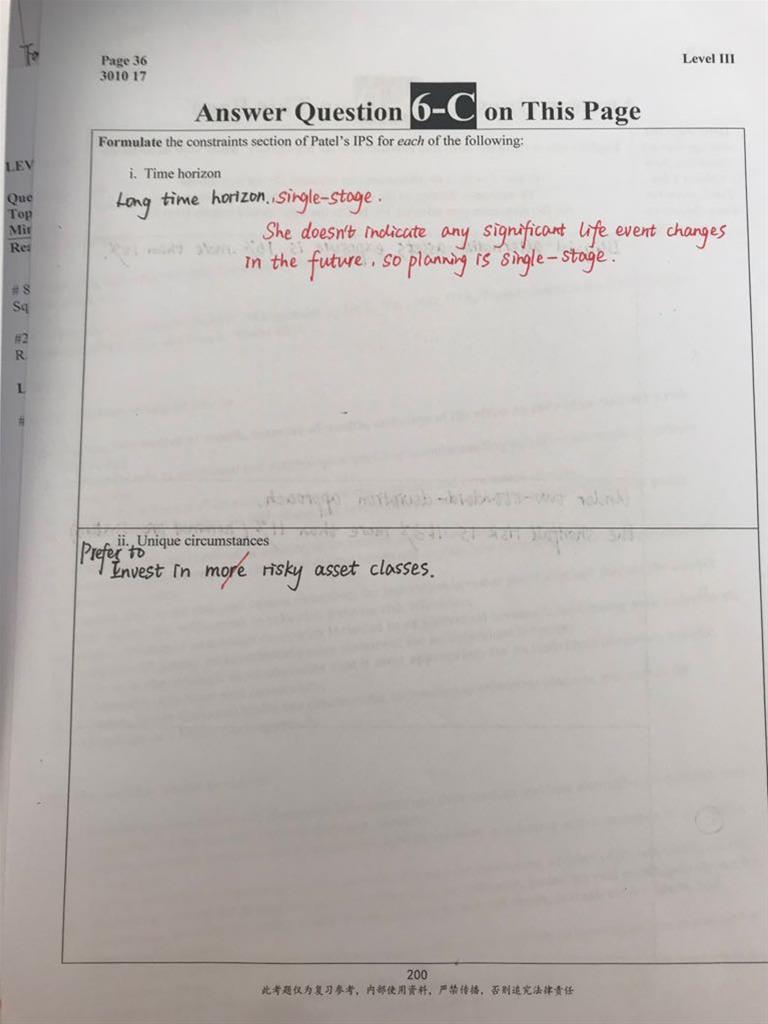 Page 36
Level III
3010 17
Answer Question 6-C on This Page
Formulate the constraints section of Patel's IPS for each of the following:
i. Time horizon
Long time horizon, single-stage.
She doesn't indicate any significant life event changes
in the future, so planning is single-stage.
ii. Unique circumstances
Prefer to
Invest in more risky asset classes.
200
此考题仅为复习参考，内部使用资料，严禁传播，否则追究法律责任
LEV
Que
Top
Min
Rea
# 8
Sq
#2
R
L
#